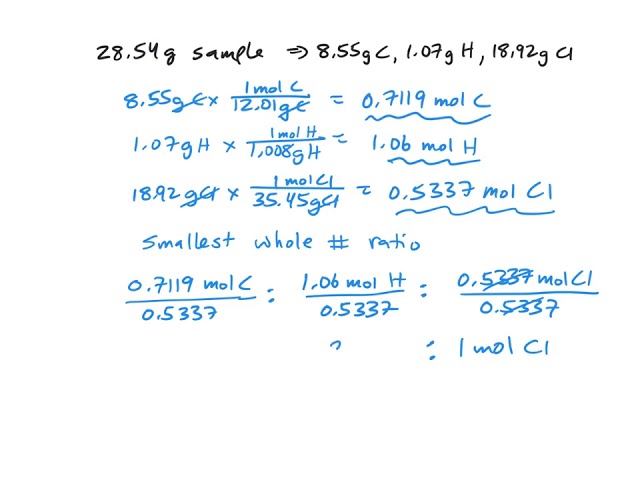 28.54g sample ⇒ 8.55gC, 1.07g H, 18.92g Cl
8.55gC x 1 mol C / 12.01gC = 0.7119 mol C
1.07gH x 1 mol H / 1.008gH = 1.06 mol H
18.92 gCl x 1 mol Cl / 35.45gCl = 0.5337 mol Cl
smallest whole # ratio
0.7119 mol C / 0.5337 : 1.06 mol H / 0.5337 : 0.5337 mol Cl / 0.5337
: 1 mol Cl